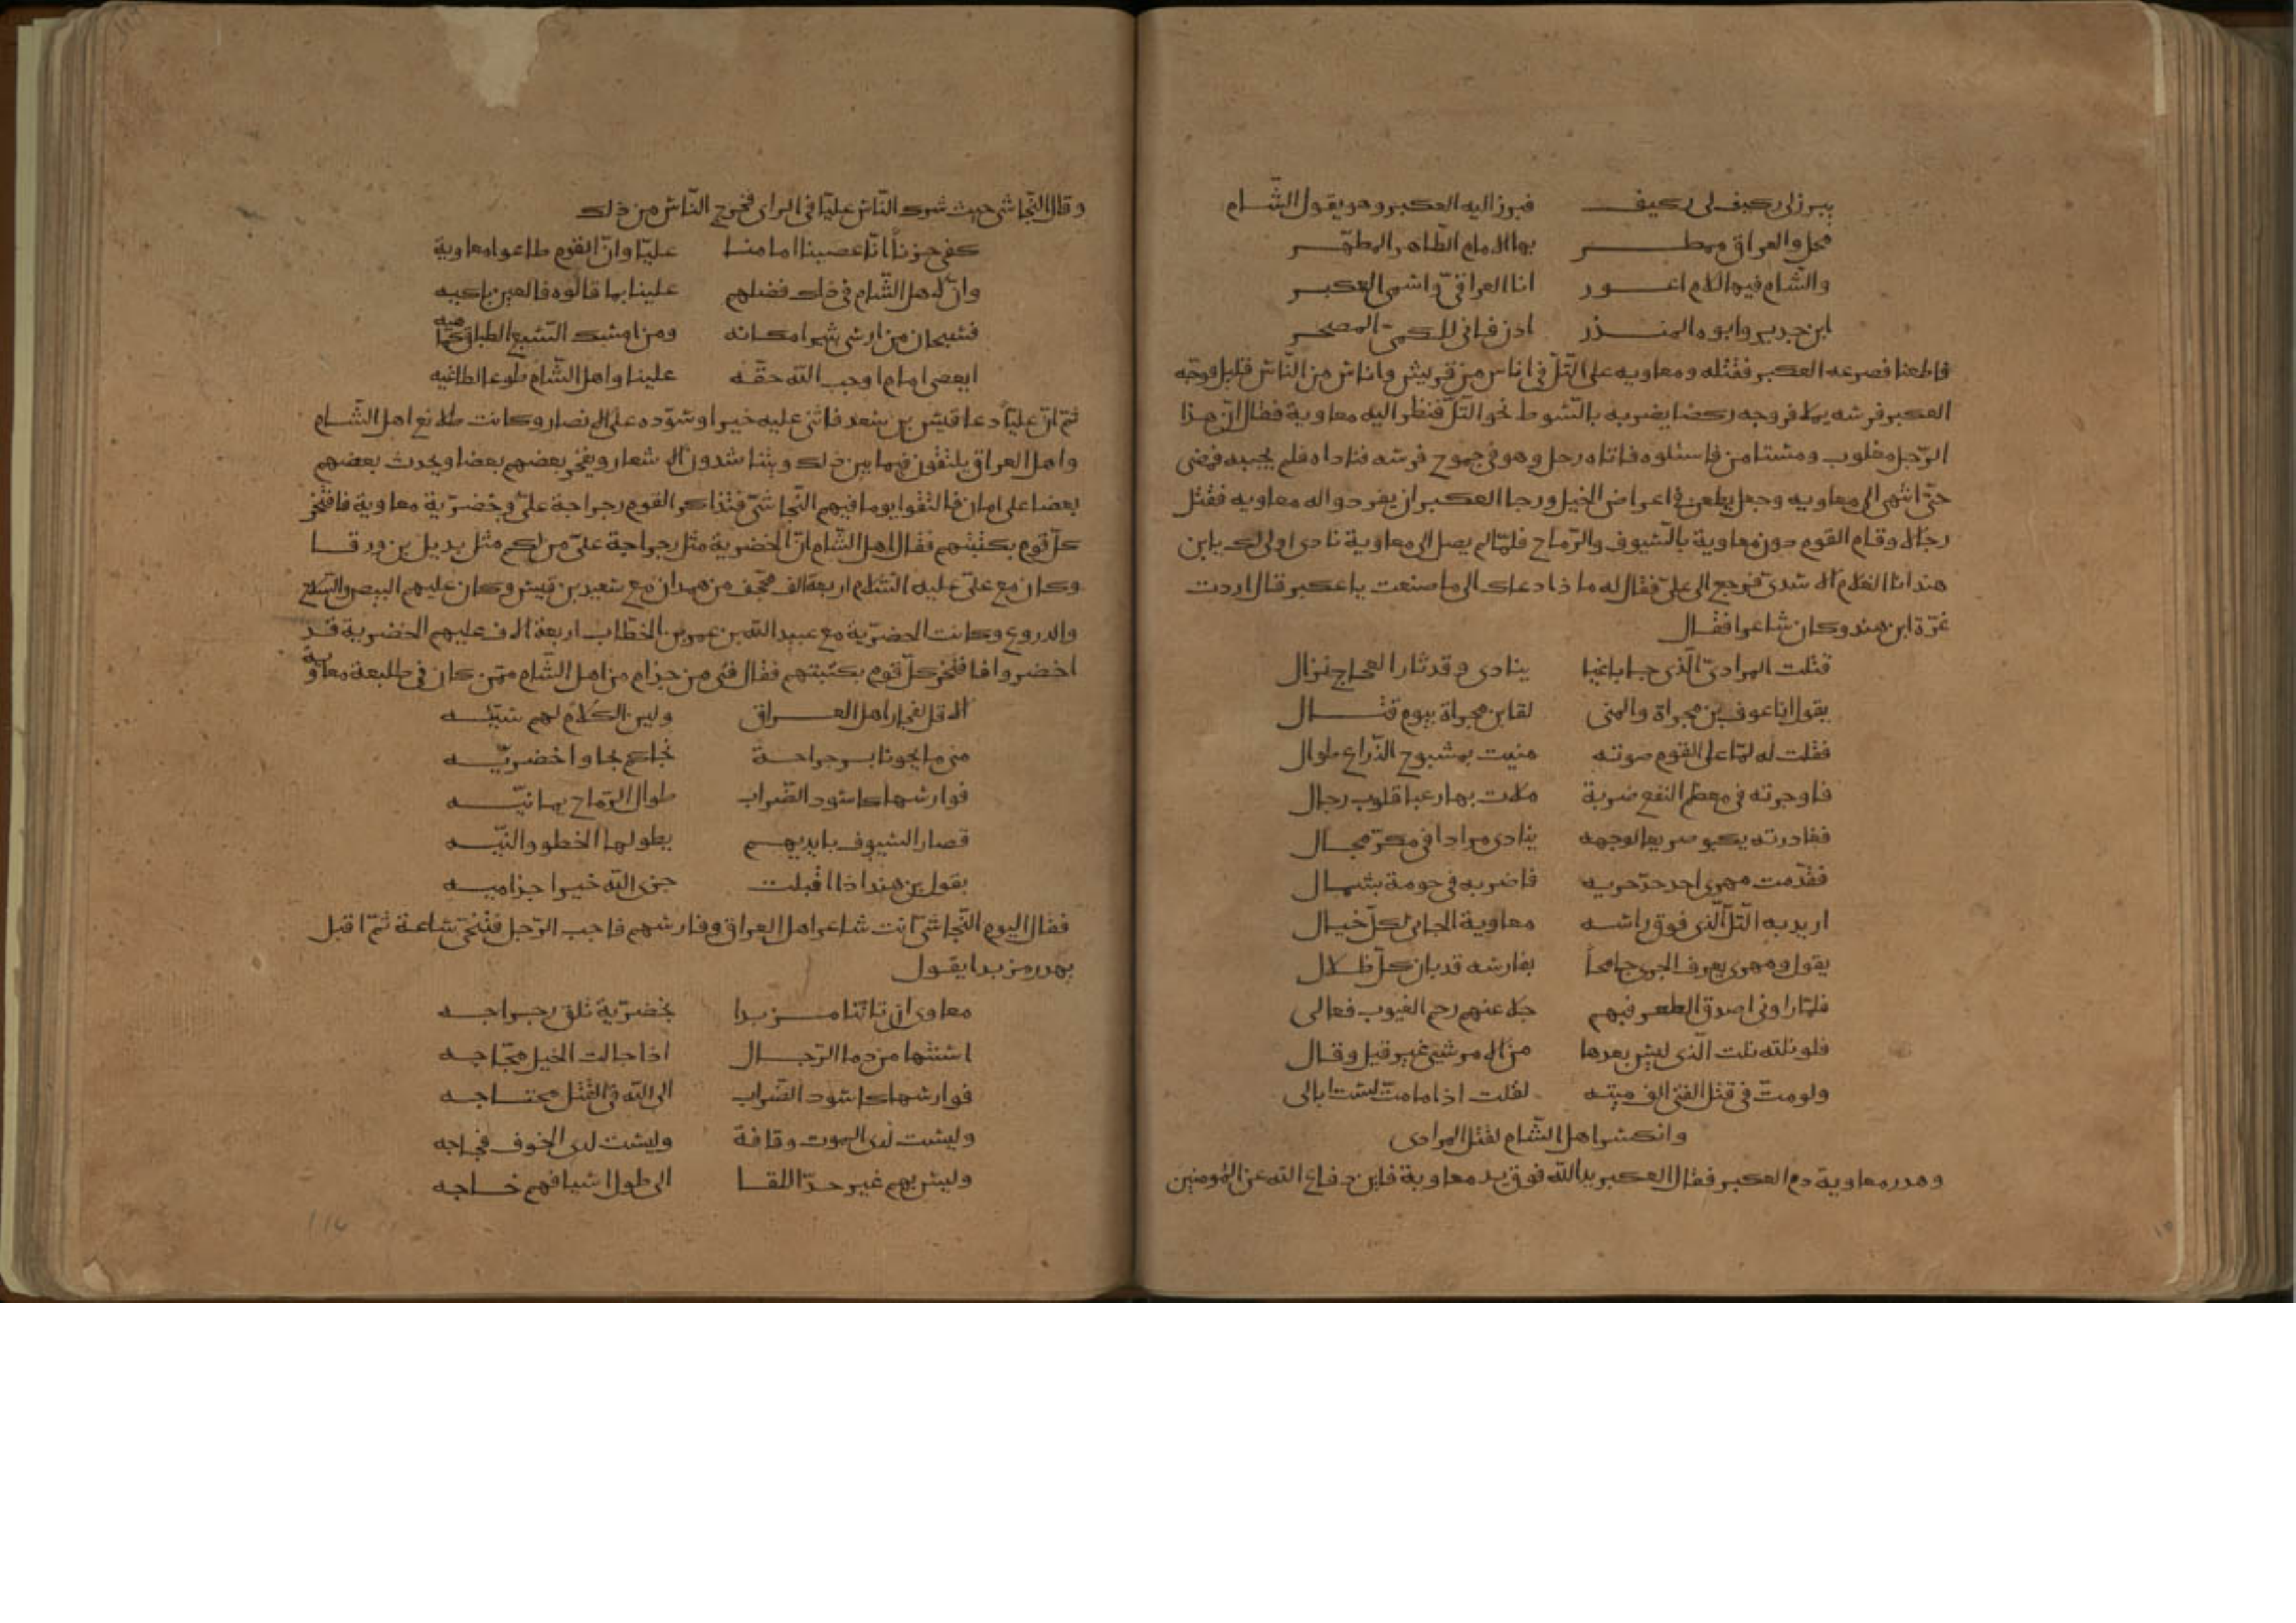 يبرز لى ركيف لى ركيف فبرز اليه العكبر وهو يقول الشام
محل والعراق ممطر بها الامام الطاهر المطهر
والشام فيها الامام اعور انا العراقى واسمى العكبر
ابن جدير وابوه المنذر ادن فانى للكمى المصحر
فاطعنا فصرعه العكبر فقتله ومعاويه على التل فى اناس من قريش واناس من الناس قليل فوجه
العكبر فرسه يملا فروجه ركضا يضربه بالسوط نحو التل فنظر اليه معاوية فقال ان هذا
الرجل مغلوب ومستامن فاسئلوه فاتاه رجل وهو فى جموح فرسه فناداه فلم يجبه فمضى
حتى انتهى الى معاويه وجعل يطعن فى اعراض الخيل ورجا العكبر ان يفردوا له معاويه فقتل
رجالا وقام القوم دون معاوية بالسيوف والرماح فلما لم يصل الى معاوية نادى اولى لك يا بن
هند انا الغلام الاسدى فرجع الى على فقال له ما ذا دعاك الى ما صنعت يا عكبر قال اردت
غرة ابن هند وكان شاعرا فقال
قتلت المرادى الذى جا باغيا ينادى وقد ثار العجاج نزال
يقول انا عوف بن مجراة والمنى لقا ابن مجراة بيوم قتال
فقلت له لما على القوم صوته منيت بمشبوح الذراع طوال
فاوجرته فى معظم النقع ضربة ملات بها رعبا قلوب رجال
فغادرته يكبو صريعا لوجهه ينادى مرادا فى مكر مجال
فقدمت مهرى اخذ حد جريه فاضربه فى حومة بشمال
اريد به التل الذى فوق راسه معاوية الجانى لكل خبال
يقول ومهرى يعرف الجرى جامحا بفارسه قد بان كل ظلال
فلما راونى اصدق الطعن فيهم جلا عنهم رجم الغيوب فعالى
فلو نلته نلت الذى ليس بعدها من الامر شىء غير قيل وقال
ولو مت فى قتل الفتى الف ميته لقلت اذا ما مت لست ابالى
وانكسر اهل الشام لقتل المرادى
وهدر معاوية دم العكبر فقال العكبر يد الله فوق يد معاوية فاين دفاع الله عن المومنين
وقال النجاشى حيث شرك الناس عليا فى الراى فخرج الناس من ذلك
كفى حزنا انا عصينا امامنا عليا وان القوم طاعوا معاوية
وان لاهل الشام فى ذاك فضلهم علينا بما قالوه فالعين باكيه
فسبحان من ارسى ثبيرا مكانه ومن امسك السبع الطباق كما هيه
ايعصى امام اوجب الله حقه علينا واهل الشام طوع الطاغيه
ثم ان عليا دعا قيس بن سعد فاثنى عليه خيرا وسوده على الانصار وكانت طلائع اهل الشام
واهل العراق يلتقون فيما بين ذلك ويتناشدون الاشعار ويفخر بعضهم بعضا ويحدث بعضهم
بعضا على امان فالتقوا يوما فيهم النجاشى فتذاكر القوم رجراجة على وخضرية معاوية فافتخر
كل قوم بكتيبتهم فقال اهل الشام ان الخضرية مثل رجراجة على من لكم مثل بديل بن ورقا
وكان مع على عليه السلام اربعة الف مجفف من همدان مع سعيد بن قيس وكان عليهم البيض والسلاح
والدروع وكانت الخضرية مع عبيد الله بن عمر بن الخطاب اربعة الاف عليهم الخضرية قد
اخضروا فافتخر كل قوم بكتيبتهم فقال فتى من جذام من اهل الشام ممن كان فى طليعة معاوية
الا قل لفجار اهل العراق ولين الكلام لهم سيئه
متى ما يجونا برجراجة نجاكم بجاوا خضريه
فوارسها كاسود الضراب طوال الرماح يمانيه
قصار السيوف بايديهم يطولها الخطو والنيه
يقول بن هند اذا اقبلت جزى الله خيرا جذاميه
فقال اليوم النجاشى انت شاعر اهل العراق وفارسهم فاجب الرجل فتنحى ساعة ثم اقبل
يهدر مزبدا يقول
معاوى ان تاتنا مزبدا بخضرية تلق رجراجه
اسنتها من دما الرجال اذا جالت الخيل مجاجه
فوارسها كاسود الضراب الى الله فى القتل محتاجه
وليست لدى الموت وقافة وليست لدى الخوف فجاجه
وليس بهم غير حد اللقا الى طول اسيافهم حاجه